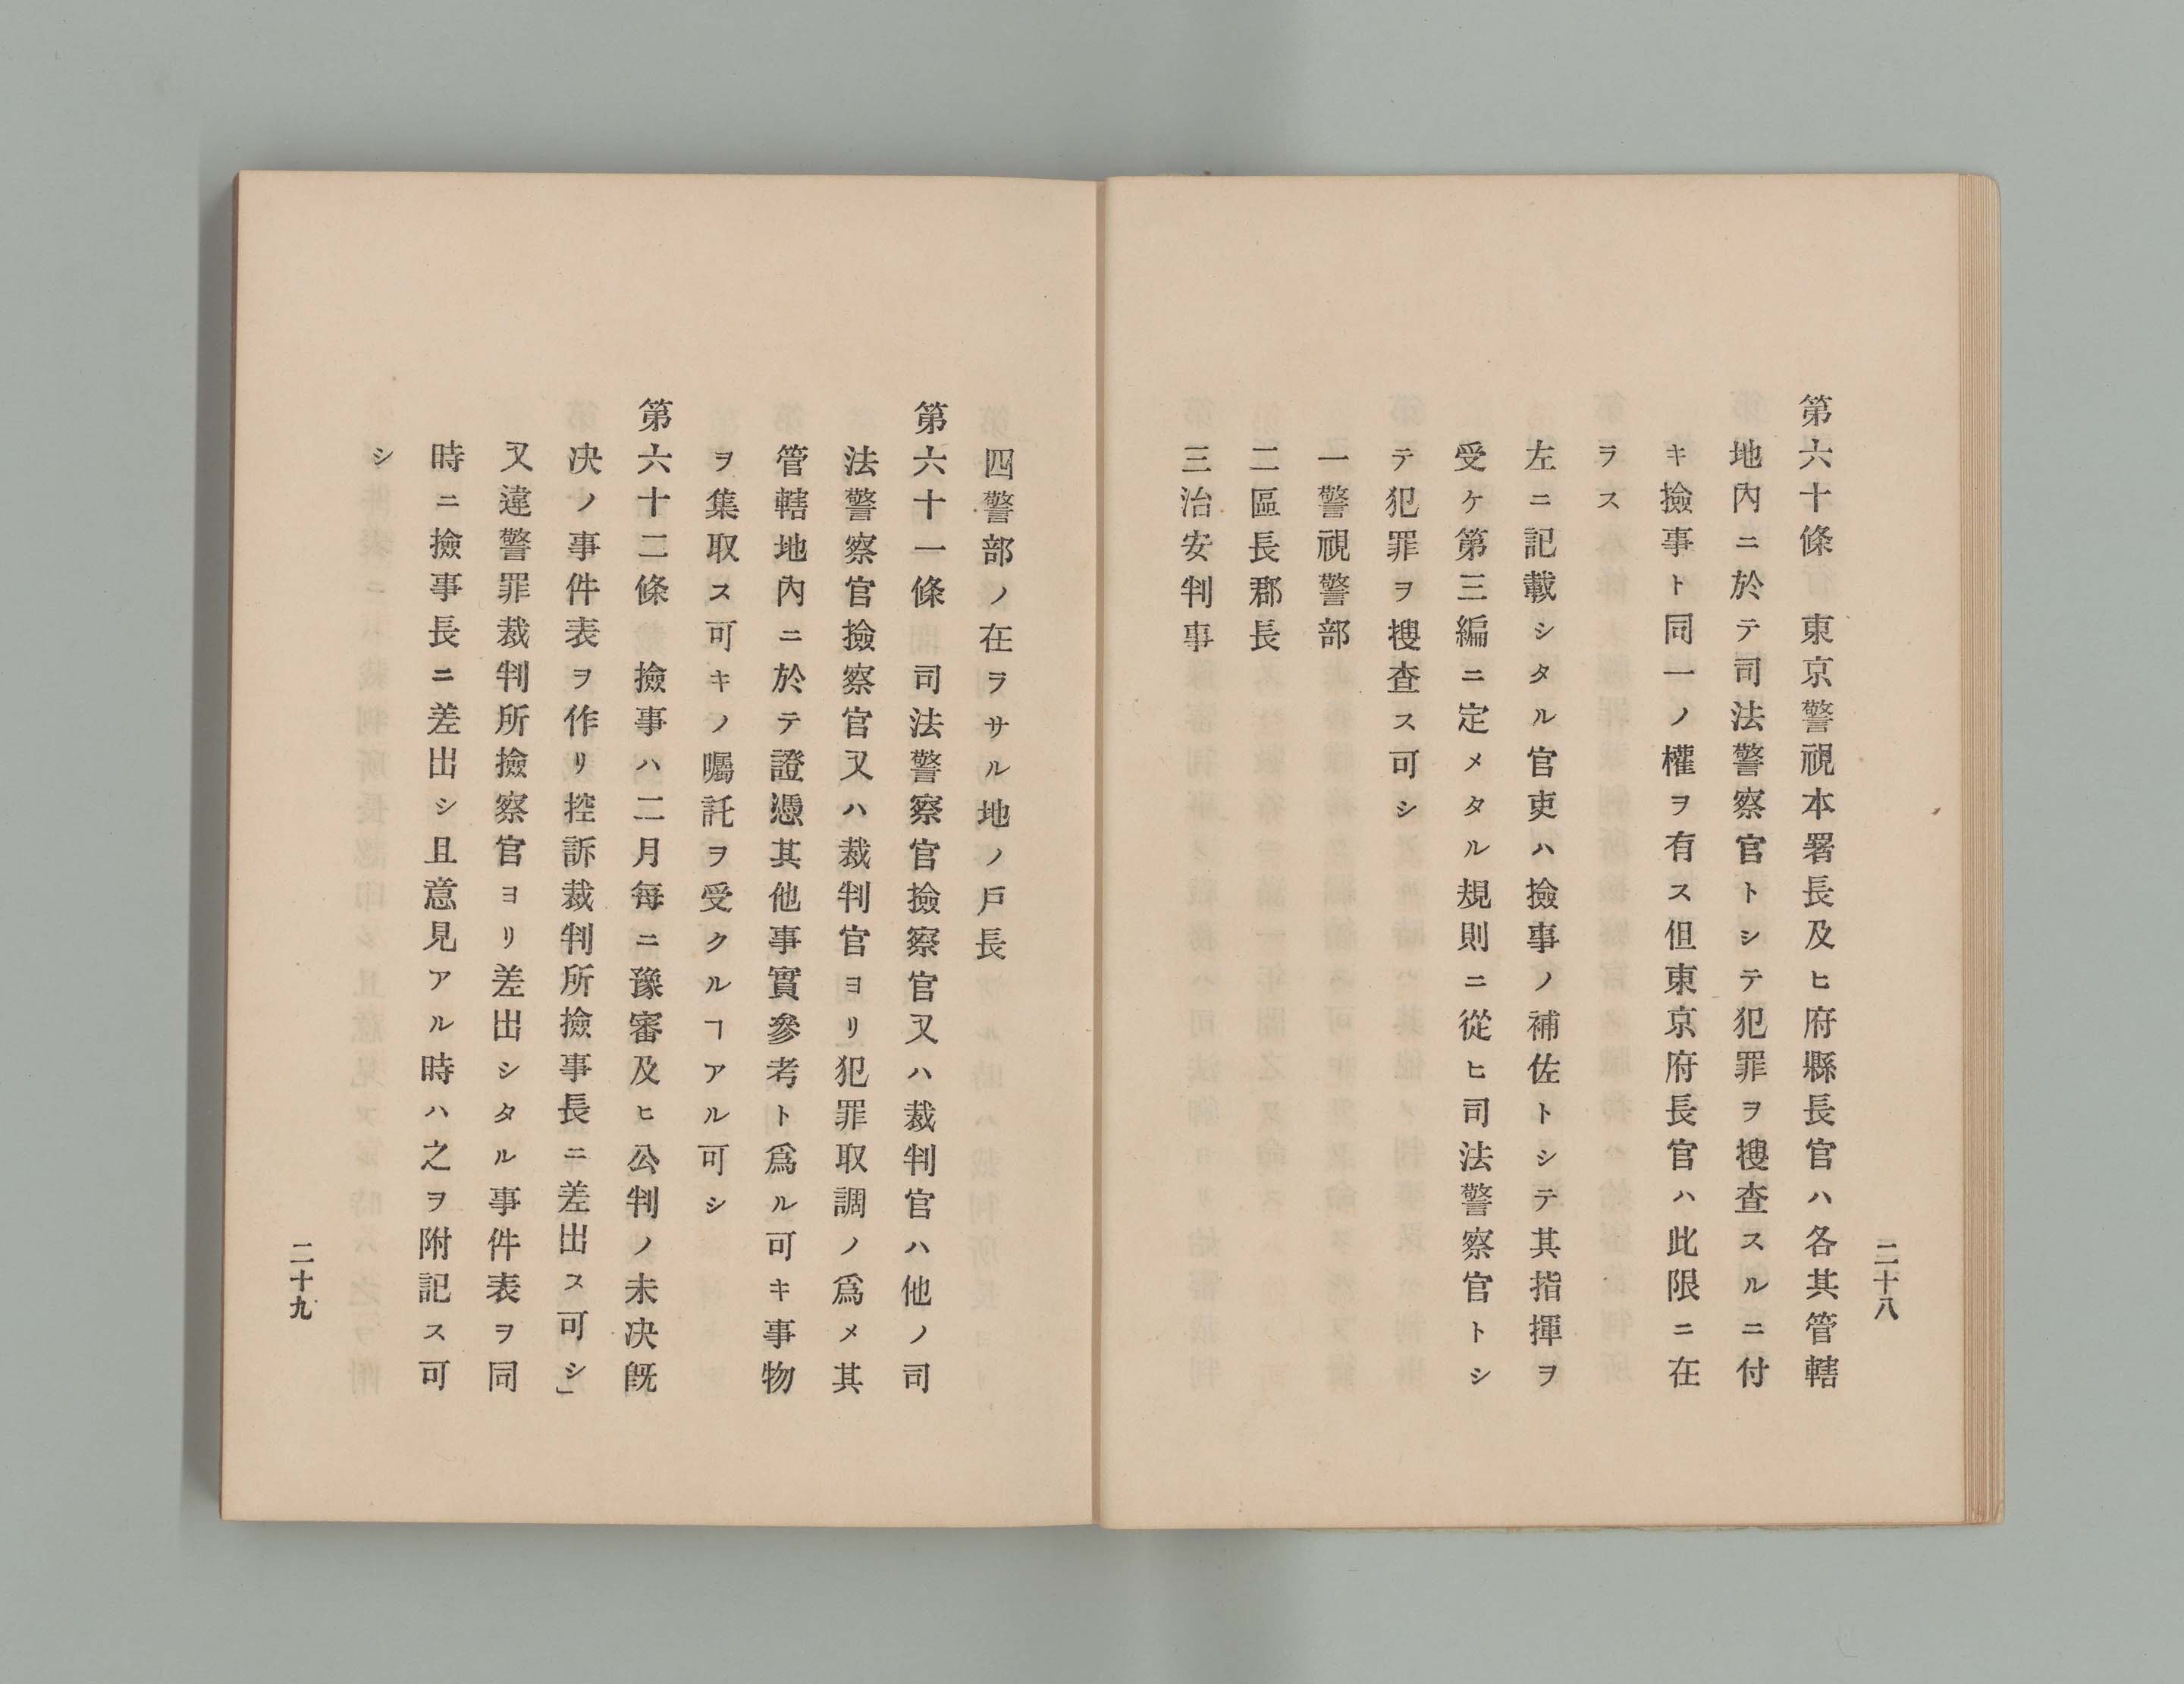 二十八
第六十條　東京警視本署長及ヒ府縣長官ハ各其管轄
地內ニ於テ司法警察官トシテ犯罪ヲ搜査スルニ付
キ撿事ト同一ノ權ヲ有ス但東京府長官ハ此限ニ在
ラス
左ニ記載シタル官吏ハ撿事ノ補佐トシテ其指揮ヲ
受ケ第三編ニ定メタル規則ニ從ヒ司法警察官トシ
テ犯罪ヲ搜査ス可シ
一警視警部
二區長郡長
三治安判事
四警部ノ在ラサル地ノ戶長
第六十一條　司法警察官撿察官又ハ裁判官ハ他ノ司
法警察官撿察官又ハ裁判官ヨリ犯罪取調ノ爲メ其
管轄地內ニ於テ證憑其他事實參考ト爲ル可キ事物
ヲ集取ス可キノ囑託ヲ受クルヿアル可シ
第六十二條　撿事ハ二月每ニ豫審及ヒ公判ノ未决旣
决ノ事件表ヲ作リ控訴裁判所撿事長ニ差出ス可シ」
又違警罪裁判所撿察官ヨリ差出シタル事件表ヲ同
時ニ撿事長ニ差出シ且意見アル時ハ之ヲ附記ス可
シ
二十九